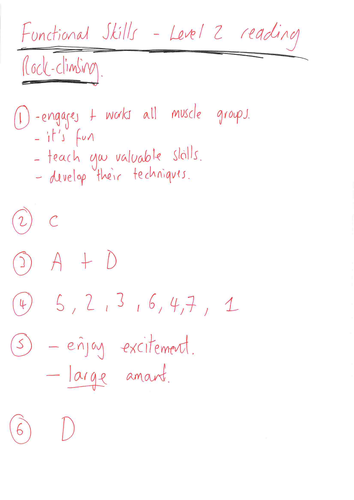 Functional Skills - Level 2 reading
Rock-climbing.
① - engages + works all muscle groups.
- it's fun
- teach you valuable skills.
- develop their techniques.
② C
③ A + D
④ 5, 2, 3, 6, 4, 7, 1
⑤ - enjoy excitement.
- large amant.
⑥ D